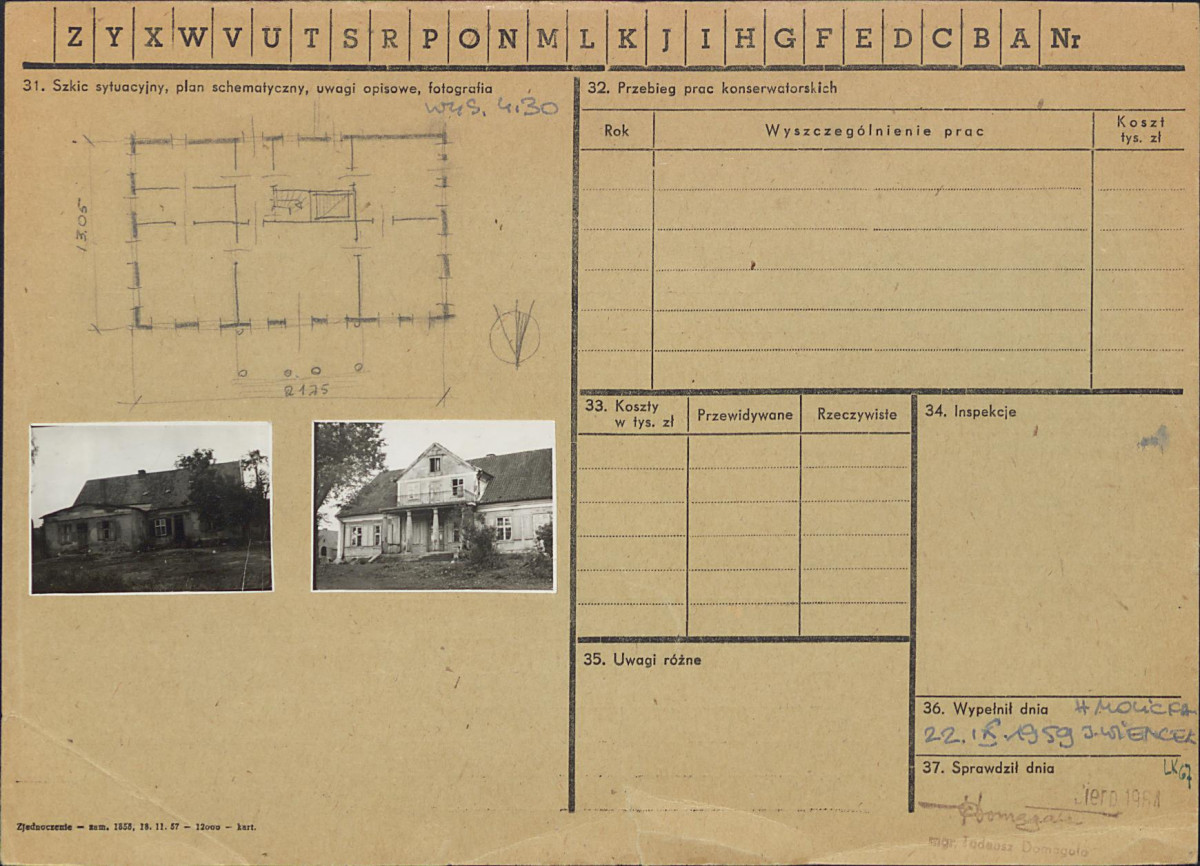 Z Y X W V U T S R P O N M L K J I H G F E D C B A Nr
31. Szkic sytuacyjny, plan schematyczny, uwagi opisowe, fotografia
wys. 4.30
13.05
2175
32. Przebieg prac konserwatorskich
Rok
Wyszczególnienie prac
Koszt
tys. zł
33. Koszty
w tys. zł
Przewidywane
Rzeczywiste
34. Inspekcje
35. Uwagi różne
36. Wypełnił dnia H MOLICKA
22. IX. 1959 J. WIENCEK
37. Sprawdził dnia
LK67
mgr. Tadeusz Domagała
Zjednoczenie — zam. 1858, 18. 11. 57 — 12000 — kart.